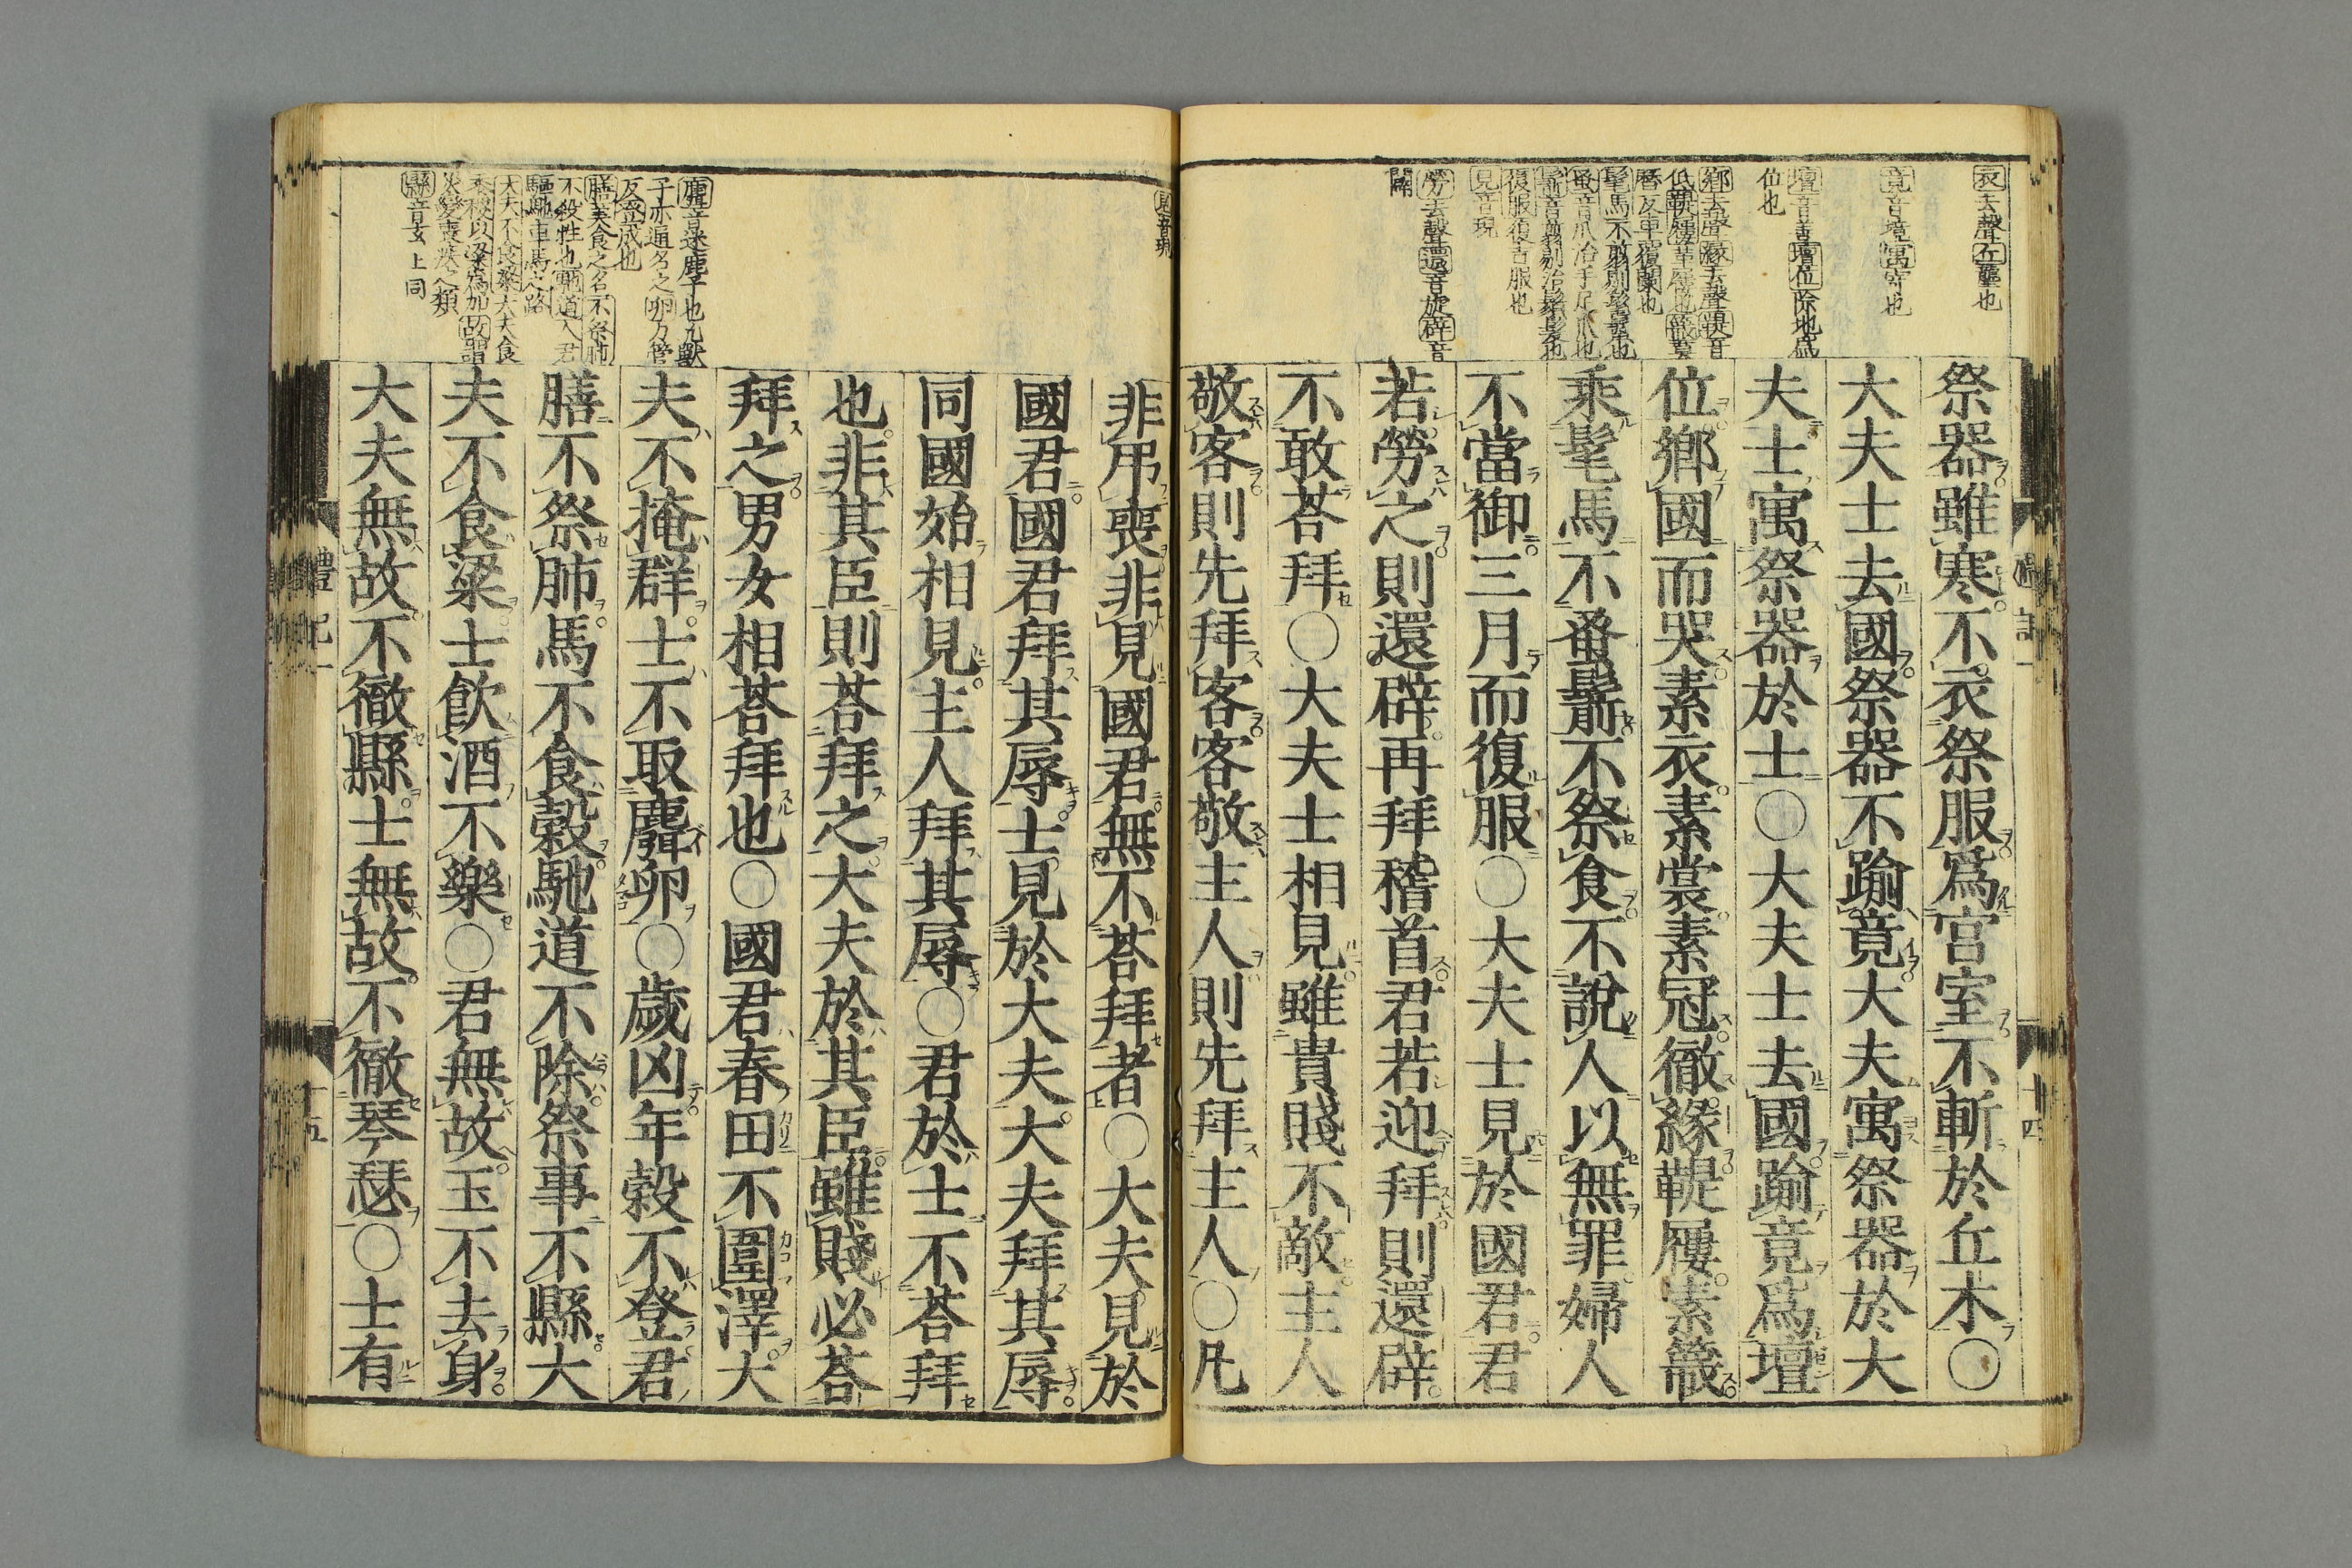 祭器雖寒不衣祭服爲宮室不斬於丘木〇
大夫士去國祭器不踰竟大夫寓祭器於大
夫士寓祭器於士〇大夫士去國踰竟爲壇
位鄉國而哭素衣素裳素冠徹緣鞮屨素簚
乘髦馬不蚤鬋不祭食不說人以無罪婦人
不當御三月而復服〇大夫士見於國君君
若勞之則還辟再拜稽首君若迎拜則還辟
不敢荅拜〇大夫士相見雖貴賤不敵主人
敬客則先拜客客敬主人則先拜主人〇凡
非弔喪非見國君無不荅拜者〇大夫見於
國君國君拜其辱士見於大夫大夫拜其辱
同國始相見主人拜其辱〇君於士不荅拜
也非其臣則荅拜之大夫於其臣雖賤必荅
拜之男女相荅拜也〇國君春田不圍澤大
夫不掩群士不取麛卵〇歲凶年穀不登君
膳不祭肺馬不食穀馳道不除祭事不縣大
夫不食粱士飲酒不樂〇君無故玉不去身
大夫無故不徹縣士無故不徹琴瑟〇士有
衣去聲丘壟也
竟音境寓寄也
壇音善壇位除地爲
位也
鄉去聲緣去聲鞮音
低鞮屨革屨也簚莫
髦馬不剪剔髦鬣也
蚤音爪治手足爪也
鬋音剪剔治鬚髮也
復服復吉服也
見音現
勞去聲還音旋辟音
闢
見音現
麛音迷鹿子也凡獸
子亦通名之卵力管
反登成也
膳美食之名不祭肺
不殺牲也馳道人君
驅馳車馬之路
大夫不食粱大夫食
黍稷以粱爲加故謂
災變喪疾之類
縣音玄上同
禮記一
十四
禮記一
十五